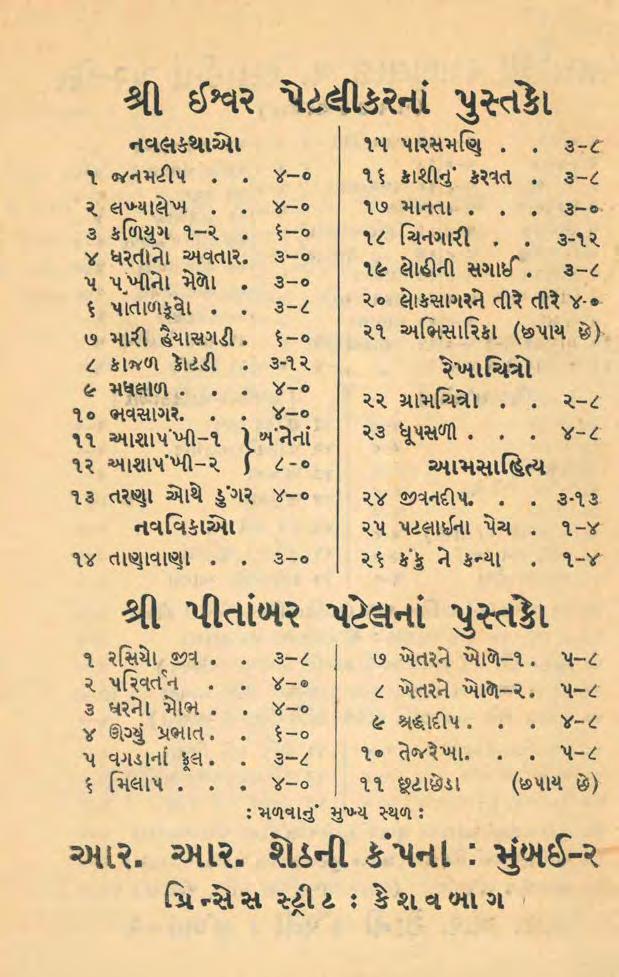 શ્રી ઈશ્વર પેટલીકરનાં પુસ્તકો
નવલકથાઓ
૧ જનમટીપ . . ૪-૦
૨ લખ્યાલેખ . . ૪-૦
૩ કળિયુગ ૧-૨ . ૬-૦
૪ ધરતીનો અવતાર. ૩-૦
૫ પંખીનો મેળો . ૩-૦
૬ પાતાળકૂવો . . ૩-૮
૭ મારી હૈયાસગડી. ૬-૦
૮ કાજળ કોટડી . ૩-૧૨
૯ મધલાળ . . . ૪-૦
૧૦ ભવસાગર. . . ૪-૦
૧૧ આશાપંખી-૧ } બંનેનાં
૧૨ આશાપંખી-૨ } ૮-૦
૧૩ તરણા ઓથે ડુંગર ૪-૦
નવલિકાઓ
૧૪ તાણાવાણા . . ૩-૦
૧૫ પારસમણિ . . ૩-૮
૧૬ કાશીનું કરવત . ૩-૮
૧૭ માનતા . . . ૩-૦
૧૮ ચિનગારી . . ૩-૧૨
૧૯ લોહીની સગાઈ . ૩-૮
૨૦ લોકસાગરને તીરે તીરે ૪-૦
૨૧ અભિસારિકા (છપાય છે)
રેખાચિત્રો
૨૨ ગ્રામચિત્રો . . ૨-૮
૨૩ ધૂપસળી . . . ૪-૮
આમસાહિત્ય
૨૪ જીવનદીપ. . . ૩-૧૩
૨૫ પટલાઈના પેચ . ૧-૪
૨૬ કંકુ ને કન્યા . ૧-૪
શ્રી પીતાંબર પટેલનાં પુસ્તકો
૧ રસિયો જીવ . . ૩-૮
૨ પરિવર્તન . . ૪-૦
૩ ઘરનો મોભ . . ૪-૦
૪ ઊગ્યું પ્રભાત. . ૬-૦
૫ વગડાનાં ફૂલ. . ૩-૮
૬ મિલાપ . . . ૪-૦
૭ ખેતરને ખોળે-૧. ૫-૮
૮ ખેતરને ખોળે-૨. ૫-૮
૯ શ્રદ્ધાદીપ. . . ૪-૮
૧૦ તેજરેખા. . . ૫-૮
૧૧ છૂટાછેડા (છપાય છે)
: મળવાનું મુખ્ય સ્થળ :
આર. આર. શેઠની કંપની : મુંબઈ-૨
પ્રિન્સેસ સ્ટ્રીટ : કેશવબાગ